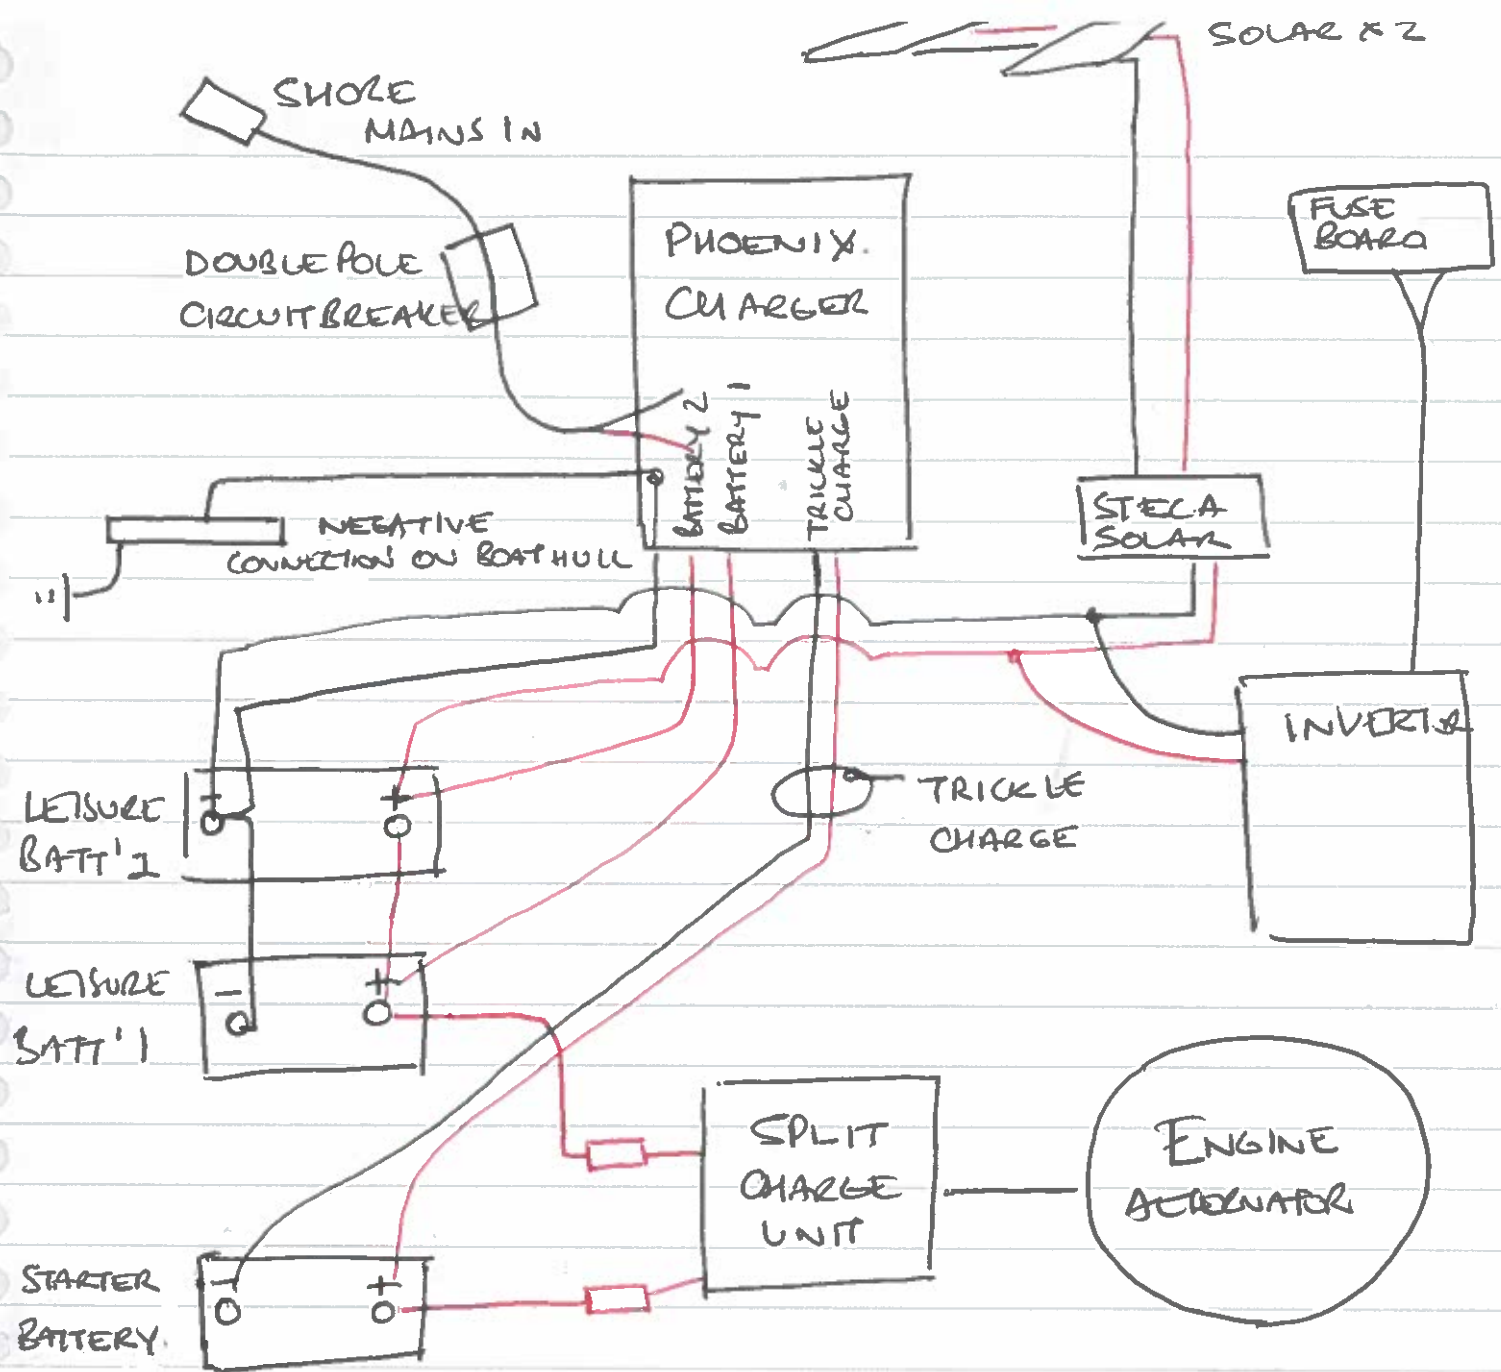 SOLAR x 2
SHORE
MAINS IN
DOUBLE POLE
CIRCUIT BREAKER
PHOENIX.
CHARGER
BATTERY 2
BATTERY 1
TRICKLE
CHARGE
FUSE
BOARD
STECA
SOLAR
NEGATIVE
CONNECTION ON BOAT HULL
INVERTER
LEISURE
BATT' 2
- +
TRICKLE
CHARGE
LEISURE
BATT' 1
- +
SPLIT
CHARGE
UNIT
ENGINE
ALTERNATOR
STARTER
BATTERY.
- +